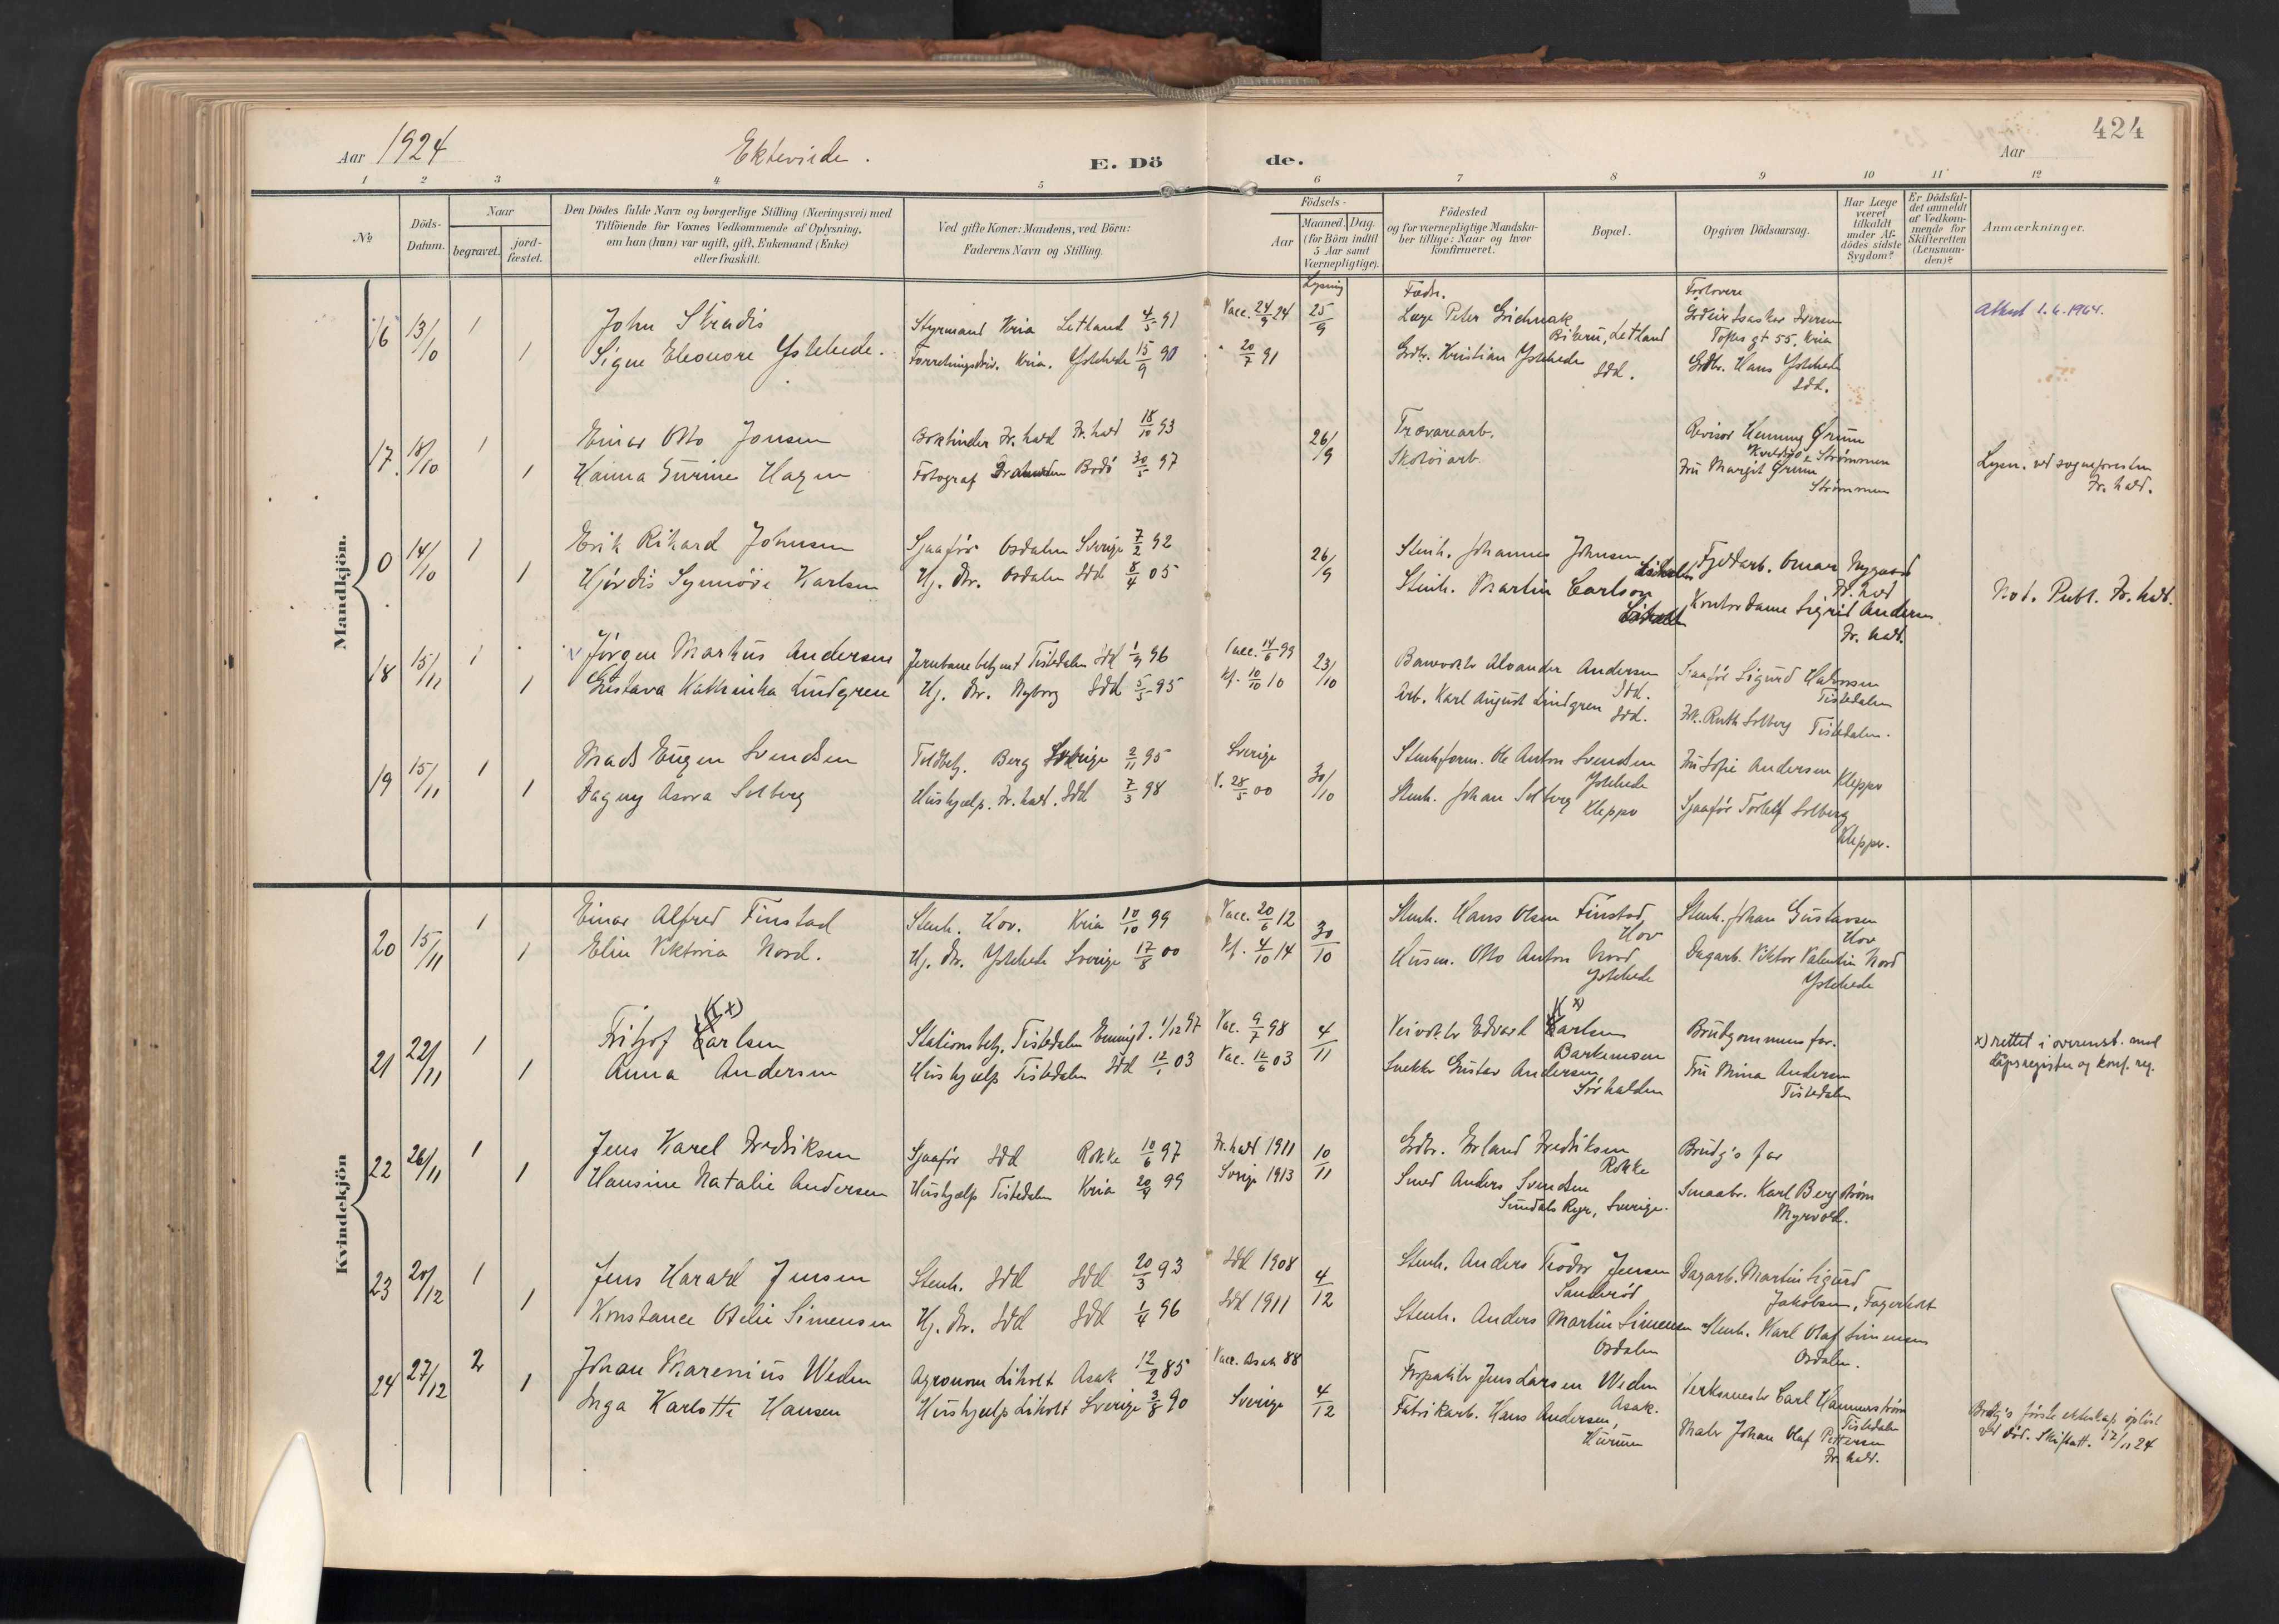 424
Aar 1924
Ektevirde.
E. Dö
de.
Aar
1 2 3 4 5 6 7 8 9 10 11 12
No
Döds-
Datum.
Naar
begravet.
jord-
fæstet.
Den Dödes fulde Navn og borgerlige Stilling (Næringsvei) med
Tilföiende for Voxnes Vedkommende af Oplysning,
om han (hun) var ugift, gift, Enkemand (Enke)
eller fraskilt.
Ved gifte Koner: Mandens, ved Börn:
Faderens Navn og Stilling.
Födsels-
Aar
Maaned. Dag.
(for Börn indtil
5 Aar samt
Værnepligtige).
Födested
og for værnepligtige Mandska-
ber tillige: Naar og hvor
konfirmeret.
Bopæl.
Opgiven Dödsaarsag.
Har Læge
været
tilkaldt
under Af-
dödes sidste
Sygdom?
Er Dödsfal-
det anmeldt
af Vedkom-
mende for
Skifteretten
(Lensman-
den)?
Anmærkninger.
Mandkjön.
Kvindekjön
Lysning
Fædr.
Forlovere
16 13/10 1 John Stradis Styrmand Kria Letland 4/5 91 Vacc. 24/9 24 25/9 Læge Peter
Bikern, Letland
Toftes gt 55, Kria
Attest 1.6.1964.
1 Signe Eleonore Ystehede. Forretningsdriv. Kria. Ystehede 15/9 90 " 20/7 91 Grdbr. Kristian Ystehede
Idd.
Grdbr. Hans Ystehede
Idd.
17. 18/10 1 Einar Otto Jonsen Bokbinder Fr.hald Fr.hald 18/10 93 26/9 Trævarearb.
Revisor Henning Ørum
Strømmen
1 Hanna Surine Hagen Fotograf Drammen Bodö 30/5 97 Skotöiarb.
Fru Margit Ørum
Strømmen
Lysn. ved sognepresten
Fr. hald.
0 14/10 1 Erik Rikard Johnsen Sjaafór Osdalen Sverige 7/2 92 26/9 Stenh. Johannes Johnsen
Fjeldarb. Omar Nygaard
Fr. hald
1 Hjördis Synnöve Karlsen Hj. dtr. Osdalen Idd 8/4 05 Stenh. Martin Carlson
Kontordame Sigrid Andersen
Fr. hald.
Not. Publ. Fr. hald.
18 15/11 1 Jörgen Markus Andersen Jernbanebetjent Tistedalen Idd 1/9 96 Vacc. 14/6 99 23/10 Banevokter Alvander Andersen
Idd.
Sjaafór Sigurd Halvorsen
Tistedalen
1 Gustava Kathinka Lindgren Hj. dtr. Nyborg Idd 5/5 95 Kf. 10/10 10 Arb. Karl August Lindgren
Idd.
Frk. Ruth Solberg Tistedalen.
19 15/11 1 Mads Eugen Svendsen Toldbetj. Berg Sverige 2/11 95 Sverige 30/10 Stenhform. Ole Anton Svendsen
Ystehede
Fru Sofie Andersen
Kleppo
1 Dagny Asora Solberg Hushjælp. Fr. hald. Idd 7/3 98 V. 28/5 00 Stenh. Johan Solberg
Kleppo
Sjaafór Torleif Solberg
Klepper.
20 15/11 1 Einar Alfred Finstad Stenh. Hov. Kria 10/10 99 Vacc. 20/6 12 30/10 Stenh. Hans Olsen Finstad,
Hov
Stenh. Johan Gustavsen
Hov
1 Elin Viktoria Nord. Hj. dtr. Ystehede Sverige 17/8 00 Kf. 4/10 14 Husm. Otto Anton Nord
Ystehede
Dagarb. Viktor Valentin Nord
Ystehede
K x)
K x)
21 22/11 1 Fritjof Carlsen Stationsbetj. Tistedalen Enningd. 1/12 97 Vac. 9/7 98 4/11 Veivokter Edvard Carlsen
Brudgommens far.
x) rettet i overenst. med
dåpsregister og konf. reg.
1 Anna Andersen Hushjælp Tistedalen Idd 12/1 03 Vac. 12/6 03 Snekker Gustav Andersen
Sörhalden
Fru Mina Andersen
Tistedalen
22 26/11 1 Jens Karel Fredriksen Sjaafór Idd Rokke 10/6 97 Fr. hald 1911 10/11 Grdbr. Erland Fredriksen
Rokke
Brudg's far
1 Hansine Natalie Andersen Hushjælp Tistedalen Kria 20/9 99 Sverige 1913 Smed Anders Svendsen
Sundals Ryr, Sverige.
Smaabr. Karl Bergstrøm
Myrvold.
23 20/12 1 Jens Harald Jensen Stenh. Idd Idd 20/3 93 Idd 1908 4/12 Stenh. Anders Teodor Jensen
Sanderöd
Dagarb. Martin Sigurd
Jakobsen, Fagerholt
1 Konstance Otelie Simensen Hj. dtr. Idd Idd 1/4 96 Idd 1911 Stenh. Anders Martin Simensen
Osdalen
Stenh. Karl Olaf Simensen
Osdalen.
24 27/12 2 Johan Marenius Weden Agronom Liholt Asak 12/2 85 Vacc. Asak 88 4/12 Forpakter Jens Larsen Weden
Asak.
Verksmester Carl Hammerstrøm
Tistedalen
1 Inga Karlotte Hansen Hushjælp Liholt Sverige 3/8 90 Sverige Fabrikarb. Hans Andersen,
Hurum
Maler Johan Olaf Pettersen
Fr. hald.
Brudg's förste ekteskap oplöst
ved död. Skifteatt. 17/11 24